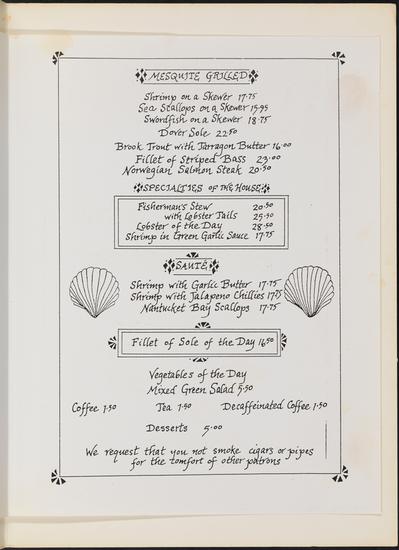 MESQUITE GRILLED
Shrimp on a Skewer 17.75
Sea Scallops on a Skewer 15.95
Swordfish on a Skewer 18.75
Dover Sole 22.50
Brook Trout with Tarragon Butter 16.00
Fillet of Striped Bass 23.00
Norwegian Salmon Steak 20.50
SPECIALTIES OF THE HOUSE
Fisherman's Stew 20.50
with Lobster Tails 25.50
Lobster of the Day 28.50
Shrimp in Green Garlic Sauce 17.75
SAUTÉ
Shrimp with Garlic Butter 17.75
Shrimp with Jalapeno Chillies 17.75
Nantucket Bay Scallops 17.75
Fillet of Sole of the Day 16.50
Vegetables of the Day
Mixed Green Salad 5.50
Coffee 1.50 Tea 1.50 Decaffeinated Coffee 1.50
Desserts 5.00
We request that you not smoke cigars or pipes
for the comfort of other patrons